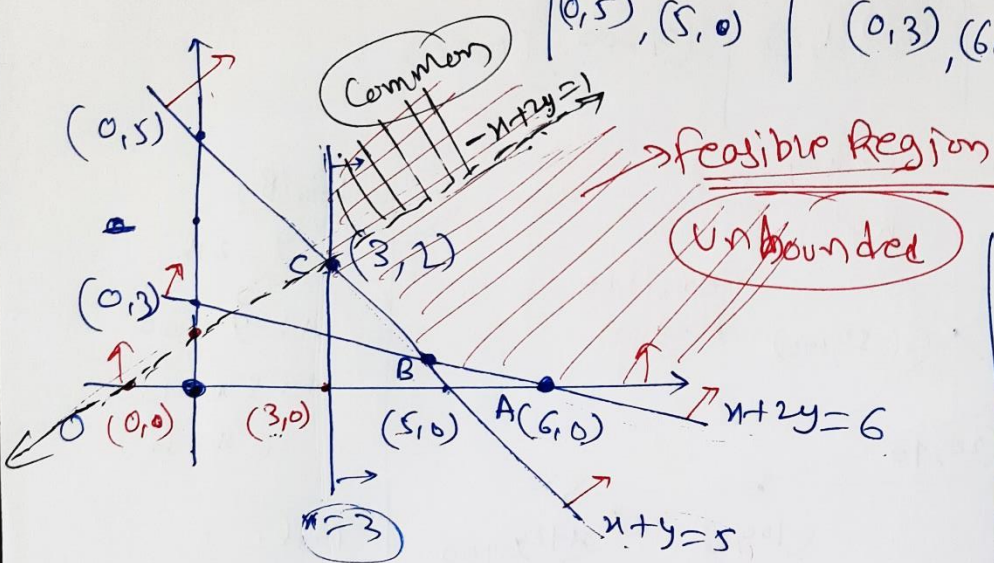 (0,5), (5,0) | (0,3), (6
Common
-x+2y=1
(0,5)
feasible Region
Unbounded
C (3,2)
(0,3)
B
O (0,0) (3,0) (5,0) A(6,0)
x+2y=6
x=3
x+y=5